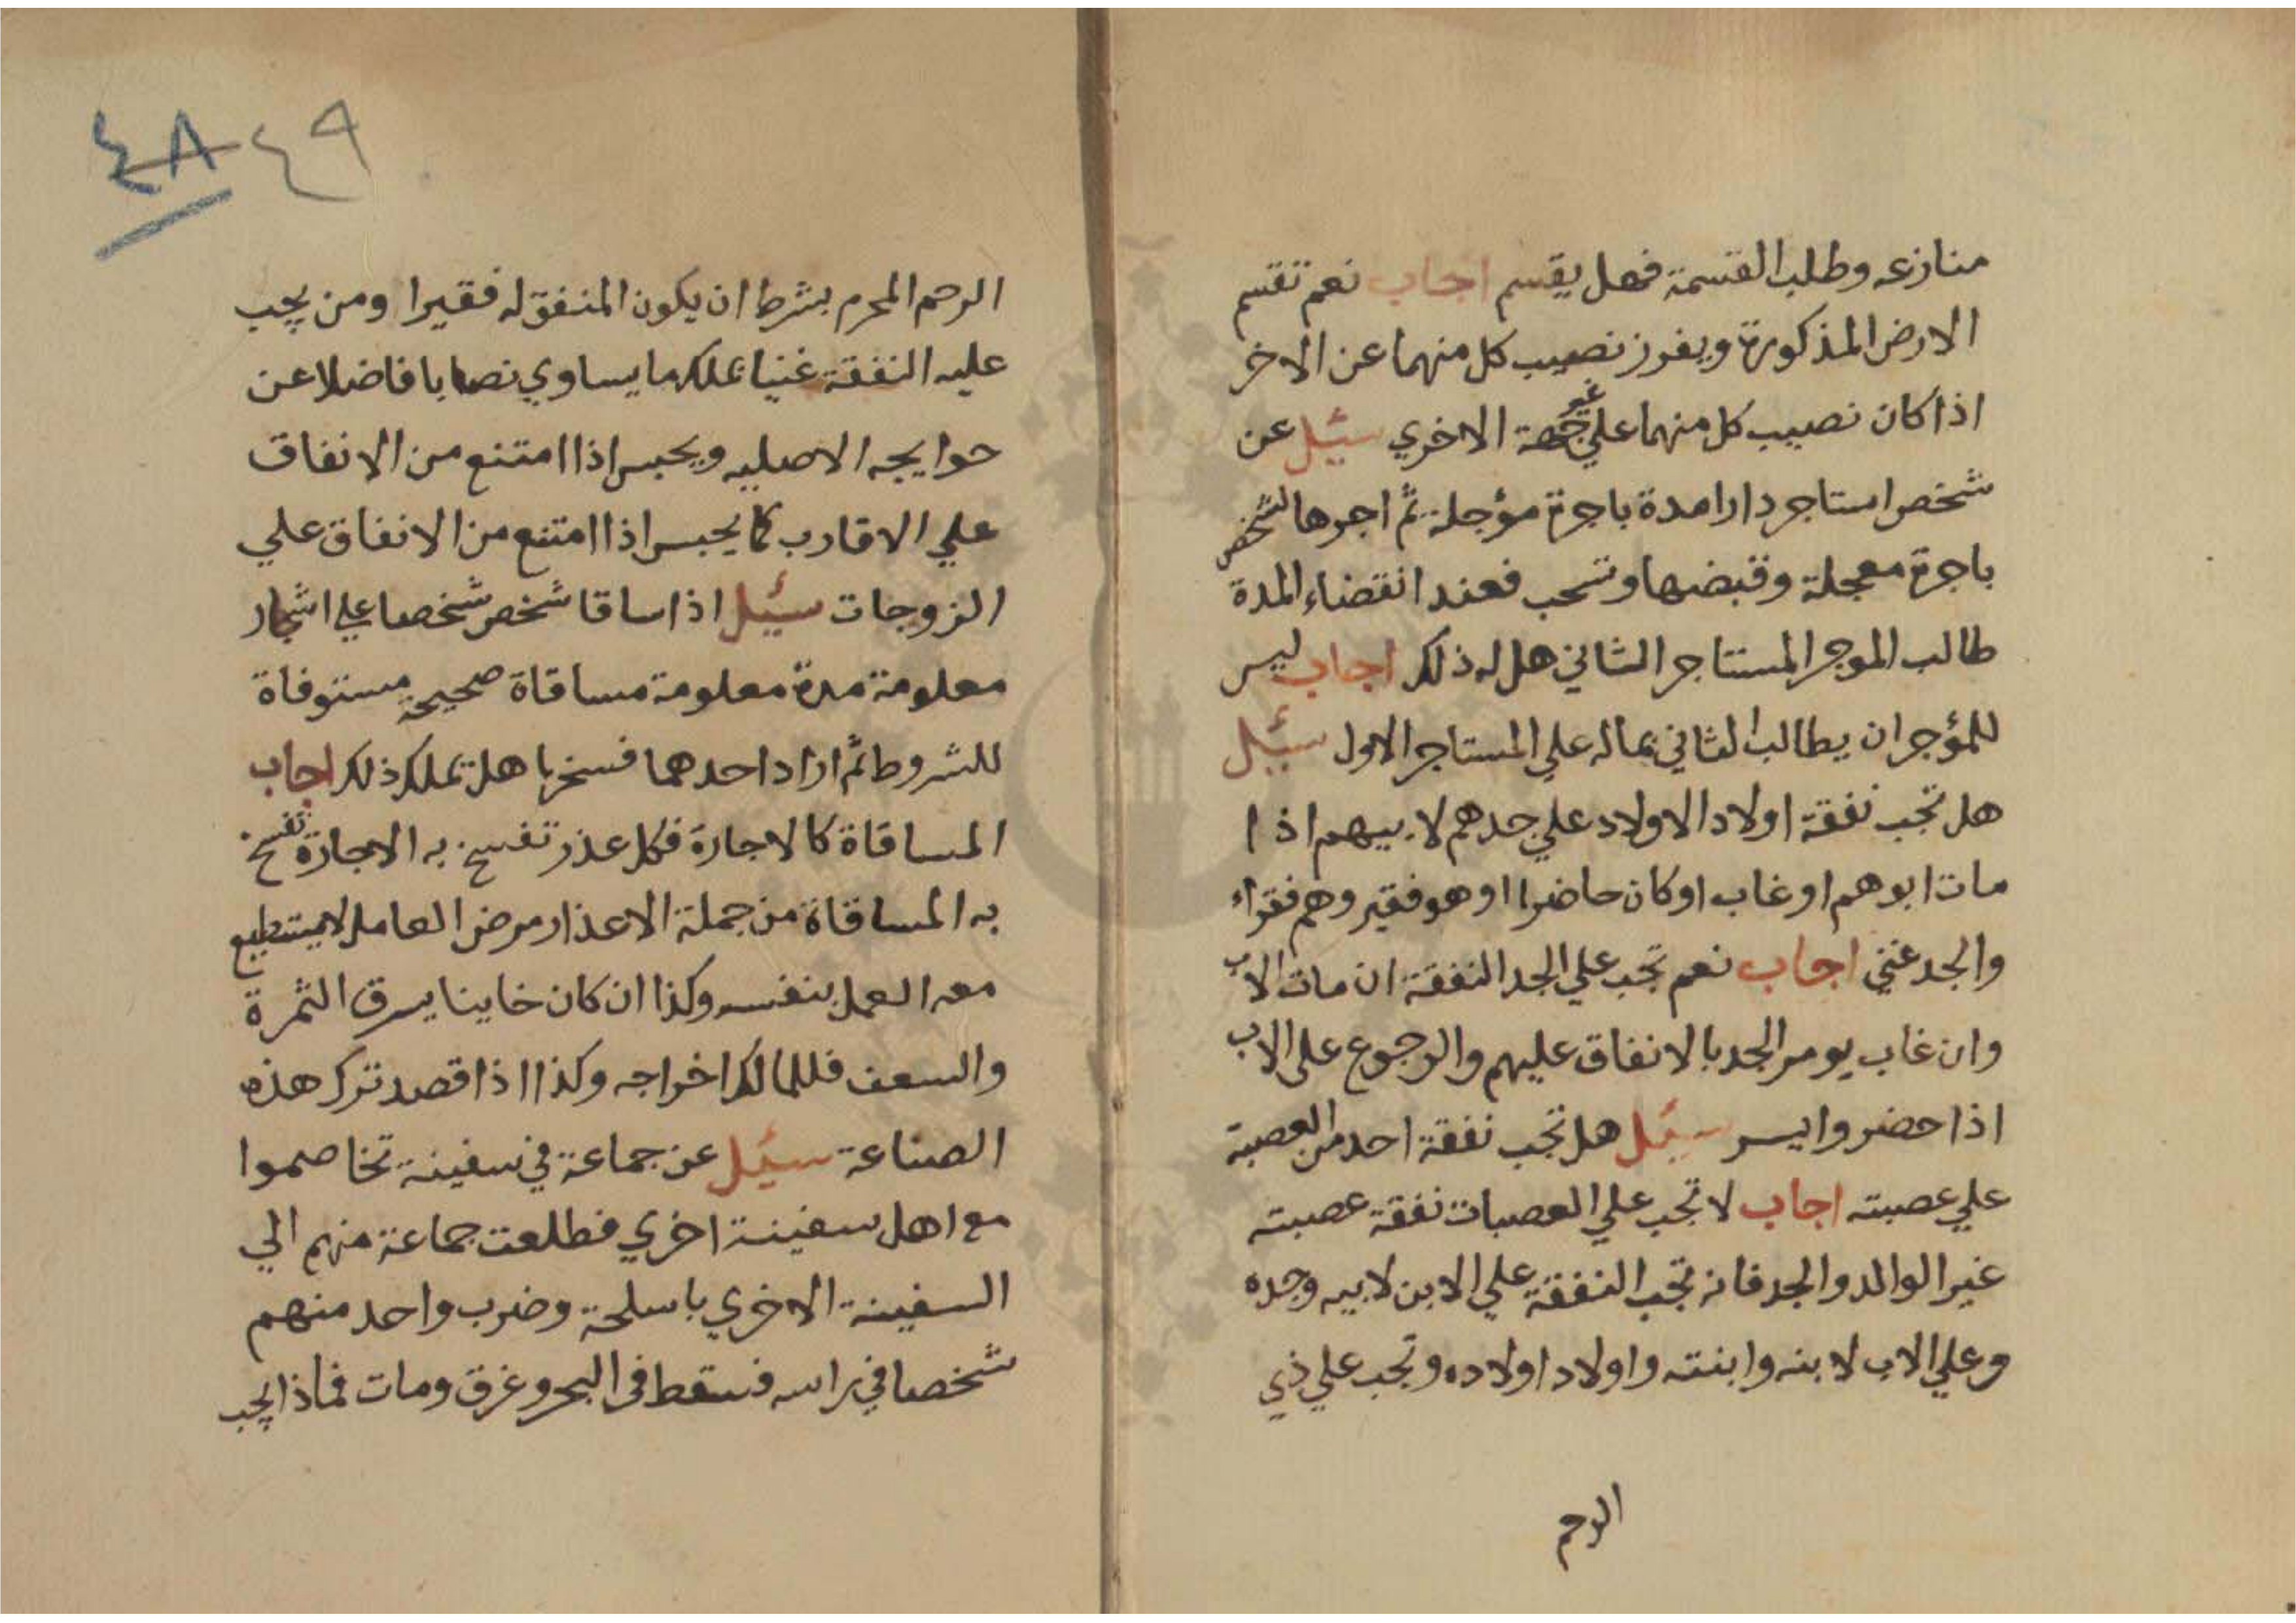 منازعه وطلب القسمة فهل يقسم اجاب نعم تقسم
الارض المذكورة ويفرز نصيب كل منهما عن الاخر
اذا كان نصيب كل منهما علي غير جهة الاخري سئيل عن
شخص استاجر دارا مدة باجرة مؤجلة ثم اجرها لشخص
باجرة معجلة وقبضها وتسحب فعند انقضاء المدة
طالب الموجر المستاجر الثاني هل له ذلك اجاب ليس
للمؤجر ان يطالب الثاني بماله علي المستاجر الاول سئيل
هل تجب نفقة اولاد الاولاد علي جدهم لابيهم اذا
مات ابوهم او غاب او كان حاضرا او هو فقير وهم فقراء
والجد غني اجاب نعم تجب علي الجد النفقة ان مات الاب
وان غاب يومر الجد بالانفاق عليهم والرجوع علي الاب
اذا حضر وايسر سئيل هل تجب نفقة احد من العصبة
علي عصبته اجاب لا تجب علي العصبات نفقة عصبته
غير الوالد والجد فانه تجب النفقة علي الابن لابيه وجده
وعلي الاب لابنه وابنته واولاد اولاده وتجب علي ذي
الرحم
٤٨ ٤٩
الرحم المحرم بشرط ان يكون المنفق له فقيرا ومن يجب
عليه النفقة غنيا بملكه ما يساوي نصابا فاضلا عن
حوايجه الاصليه ويحبس اذا امتنع من الانفاق
علي الاقارب كما يحبس اذا امتنع من الانفاق علي
الزوجات سئيل اذا ساقا شخص شخصا علي اشجار
معلومة مدة معلومة مساقاة صحيحة مستوفاة
للشروط ثم اراد احدهما فسخها هل يملك ذلك اجاب
المساقاة كالاجارة فكل عذر تفسخ به الاجارة تفسخ
به المساقاة من جملة الاعذار مرض العامل لا يستطيع
معه العمل بنفسه وكذا ان كان خاينا يسرق الثمرة
والسعف فللمالك اخراجه وكذا اذا قصد ترك هذه
الصناعة سئيل عن جماعة في سفينة تخاصموا
مع اهل سفينة اخري فطلعت جماعة منهم الي
السفينة الاخري باسلحة وضرب واحد منهم
شخصا في راسه فسقط في البحر وغرق ومات فماذا يجب